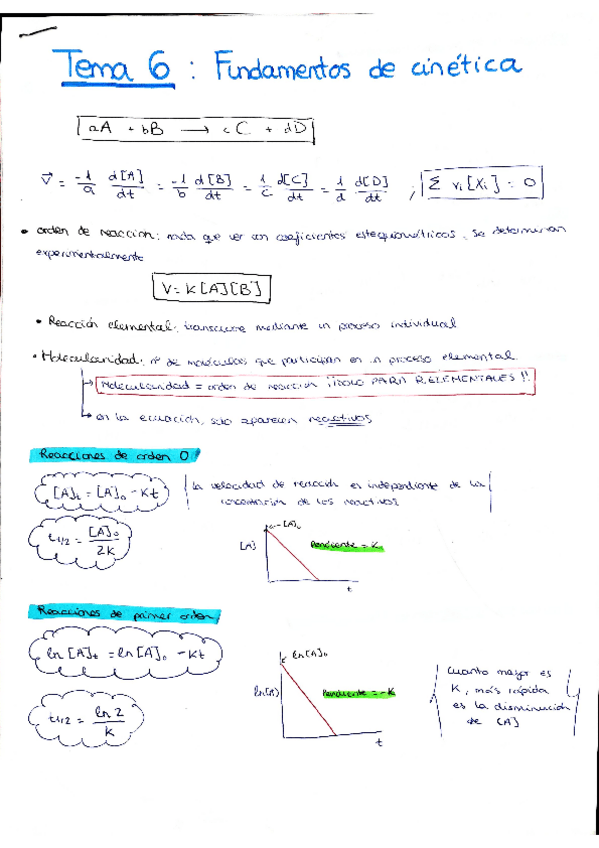 Tema 6 : Fundamentos de cinética
aA + bB → cC + dD
V = -1/a d[A]/dt = -1/b d[B]/dt = 1/c d[C]/dt = 1/d d[D]/dt ; Σ νi [Xi] = 0
• orden de reacción: nada que ver con coeficientes estequiométricos, se determinan
experimentalmente
V = K [A][B]
• Reacción elemental: transcurre mediante un proceso individual
• Molecularidad: nº de moléculas que participan en un proceso elemental.
→ Molecularidad = orden de reacción ¡¡SOLO PARA R. ELEMENTALES!!
→ en la ecuación, solo aparecen reactivos
Reacciones de orden 0:
[A]t = [A]o - Kt
La velocidad de reacción es independiente de la
concentración de los reactivos
t1/2 = [A]o / 2K
[A]o
[A]
Pendiente = K
t
Reacciones de primer orden:
ln [A]t = ln [A]o - Kt
t1/2 = ln 2 / K
ln [A]o
ln [A]
Pendiente = -K
t
Cuanto mayor es
K, más rápida
es la disminución
de [A]